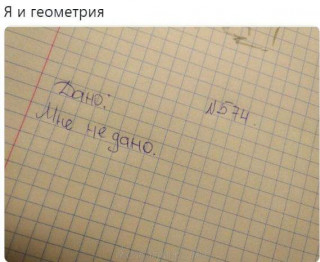 Я и геометрия
№574.
Дано:
Мне не дано.